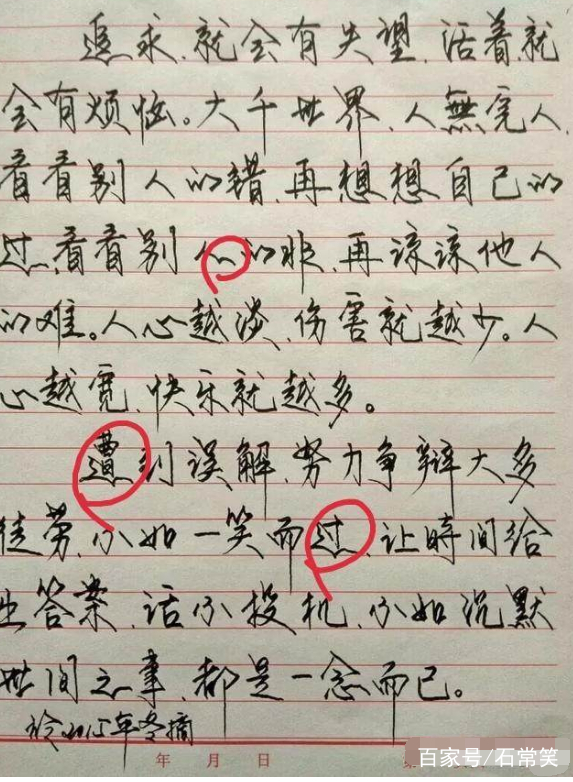 追求,就会有失望,活着就
会有烦恼。大千世界,人無完人,
看看别人的错,再想想自己的
过,看看别人的非,再谅谅他人
的难。人心越淡,伤害就越少。人
心越宽,快乐就越多。
遭到误解,努力争辩大多
徒劳,不如一笑而过,让時间给
出答案,话不投机,不如沉默
世间之事,都是一念而已。
於2015年冬摘
年 月 日
百家号/石常笑